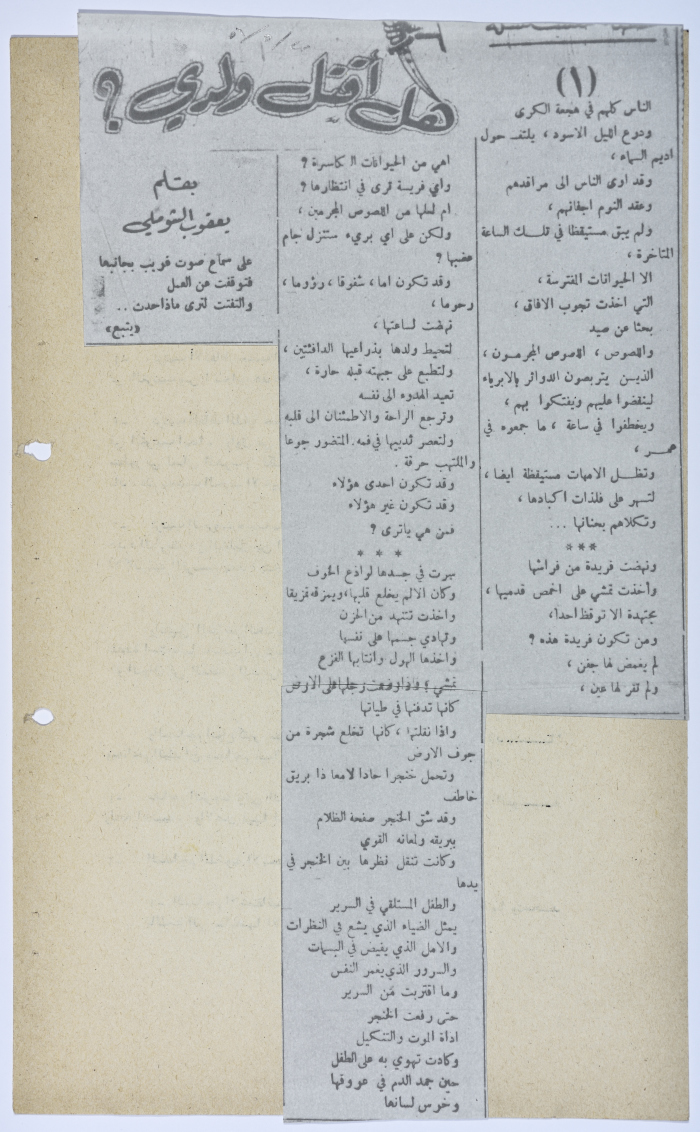 هل أقتل ولدي ؟
بقلم
يعقوب الشوملي
(١)
الناس كلهم في هجعة الكرى
ودرع الليل الاسود ، يلتف حول
اديم السماء ،
وقد اوى الناس الى مراقدهم
وعقد النوم اجفانهم ،
ولم يبق مستيقظا في تلك الساعة
المتاخرة ،
الا الحيوانات المفترسة ،
التي اخذت تجوب الافاق ،
بحثا عن صيد
واللصوص ، اللاصوص المجرمون ،
الذين يتربصون الدوائر بالابرياء
لينقضوا عليهم ويفتكوا بهم ،
ويخطفوا في ساعة ، ما جمعوه في
عمر ،
وتظل الامهات مستيقظة ايضا ،
لتسهر على فلذات اكبادها ،
وتكلاهم بحنانها ...
***
ونهضت فريدة من فراشها
وأخذت تمشي على اخمص قدميها ،
مجتهدة الا توقظ احدا،
ومن تكون فريدة هذه ؟
لم يغمض لها جفن ،
ولم تقر لها عين ،
اهي من الحيوانات الكاسرة ؟
واي فريسة ترى في انتظارها ؟
ام لعلها من اللصوص المجرمين ،
ولكن على اي بريء ستنزل جام
غضبها ؟
وقد تكون اما ، شفوقا ، رؤوما ،
رحوما ،
نهضت لساعتها ،
لتحيط ولدها بذراعيها الدافئتين ،
ولتطبع على جبهته قبلة حارة ،
تعيد الهدوء الى نفسه
وترجع الراحة والاطمئنان الى قلبه
ولتعصر ثديها في فمه المتضور جوعا
والملتهب حرقة .
وقد تكون احدى هؤلاء
وقد تكون غير هؤلاء
فمن هي ياترى ؟
* * *
سرت في جسدها لواذع الخوف
وكان الالم يخلع قلبها، ويمزقه تمزيقا
واخذت تتنهد من الحزن
وتهادي جسمها على نفسها
واخذها الهول وانتابها الفزع
تمشي ؛ واذا وضعت رجلها على الارض
كانها تدفنها في طياتها
واذا نقلتها ، كانها تخلع شجرة من
جوف الارض
وتحمل خنجرا حادا لامعا ذا بريق
خاطف
وقد شق الخنجر صفحة الظلام
ببريقه ولمعانه القوي
وكانت تنقل نظرها بين الخنجر في
يدها
والطفل المستلقي في السرير
يمثل الضياء الذي يشع في النظرات
والامل الذي يفيض في البسمات
والسرور الذي يغمر النفس
وما اقتربت من السرير
حتى رفعت الخنجر
اداة الموت والتنكيل
وكادت تهوي به على الطفل
حين جمد الدم في عروقها
وخرس لسانها
على سماع صوت قريب بجانبها
فتوقفت عن العمل
والتفتت لترى ماذا حدث ..
«يتبع»